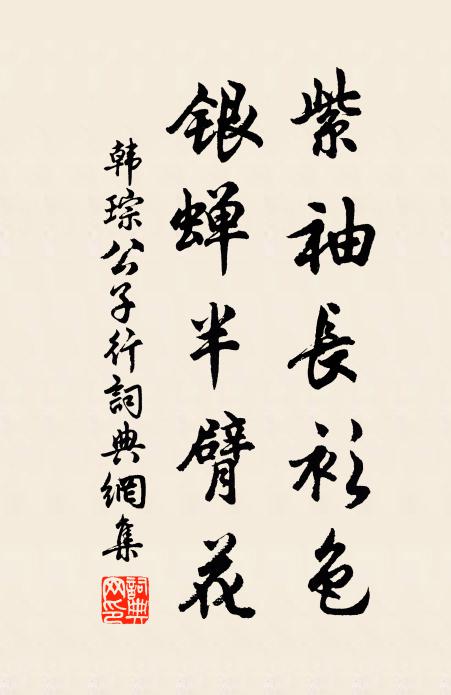 紫袖長衫色
銀蝉半臂花
韩琮公子行詞典網集
詞典网印